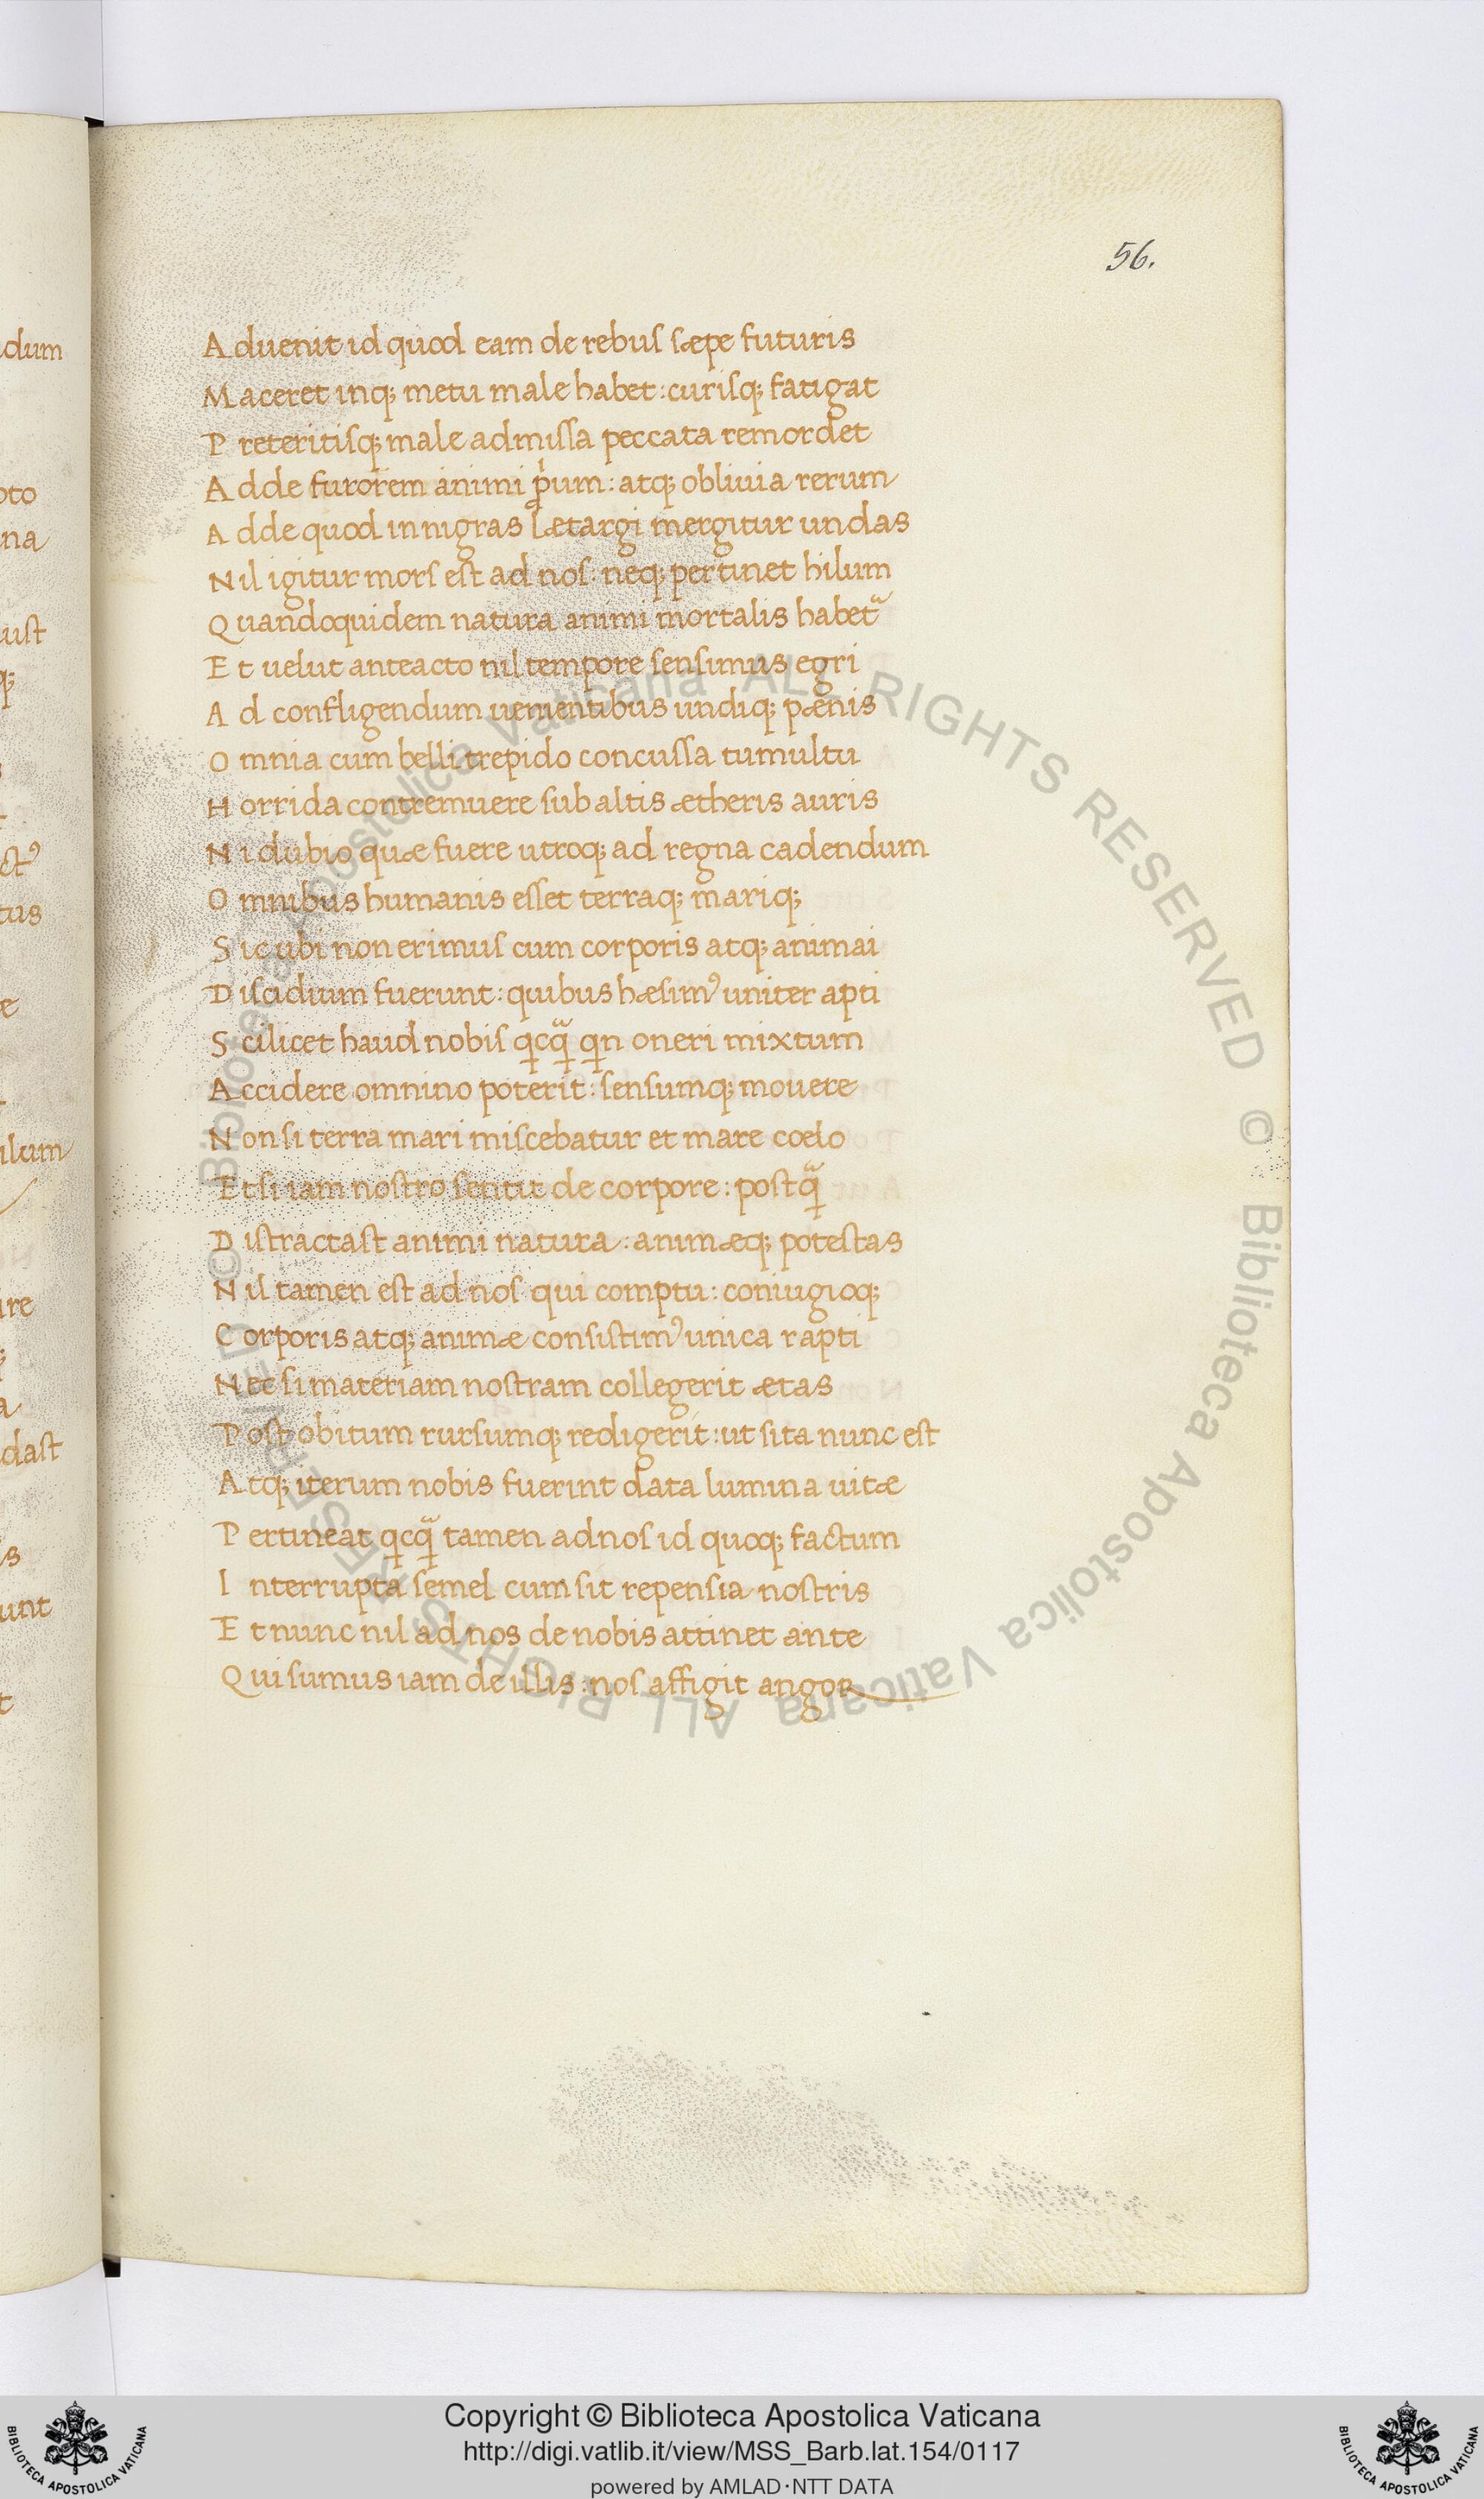 dum
oto
na
ust
q;
ct᾽
tus
e
ilum
ire
a
dast
is
unt
56.
Aduenit id quod eam de rebus sæpe futuris
Maceret inq; metu male habet: curisq; fatigat
Preteritisq; male admissa peccata remordet
Adde furorem animi ꝓprium: atq; obliuia rerum
Adde quod in nigras lætargi mergitur undas
Nil igitur mors est ad nos: neq; pertinet hilum
Quandoquidem natura animi mortalis habet᷑
Et uelut anteacto nil tempore sensimus egri
Ad confligendum uenientibus undiq; pænis
Omnia cum belli trepido concussa tumultu
Horrida contremuere sub altis ætheris auris
Ni dubio quæ fuere utroq; ad regna cadendum
Omnibus humanis esset terraq; mariq;
Sic ubi non erimus cum corporis atq; animai
Discidium fuerunt: quibus hæsim᾽ uniter apti
Scilicet haud nobis qcq̃ qn oneri mixtum
Accidere omnino poterit: sensumq; mouere
Non si terra mari miscebatur et mare coelo
Et si iam nostro sentit de corpore: postq̃
Distractast animi natura: animæq; potestas
Nil tamen est ad nos qui comptu: coniugioq;
Corporis atq; animæ consistim᾽ unica rapti
Nec si materiam nostram collegerit ætas
Post obitum rursumq; redigerit: ut sita nunc est
Atq; iterum nobis fuerint data lumina uitæ
Pertineat qcq̃ tamen ad nos id quoq; factum
Interrupta semel cum sit repensia nostris
Et nunc nil ad nos de nobis attinet ante
Qui sumus iam de illis: nos affigit angor
© Biblioteca Apostolica Vaticana ALL RIGHTS RESERVED © Biblioteca Apostolica Vaticana ALL RIGHTS RESERVED
Copyright © Biblioteca Apostolica Vaticana
http://digi.vatlib.it/view/MSS_Barb.lat.154/0117
powered by AMLAD·NTT DATA
BIBLIOTECA APOSTOLICA VATICANA
BIBLIOTECA APOSTOLICA VATICANA